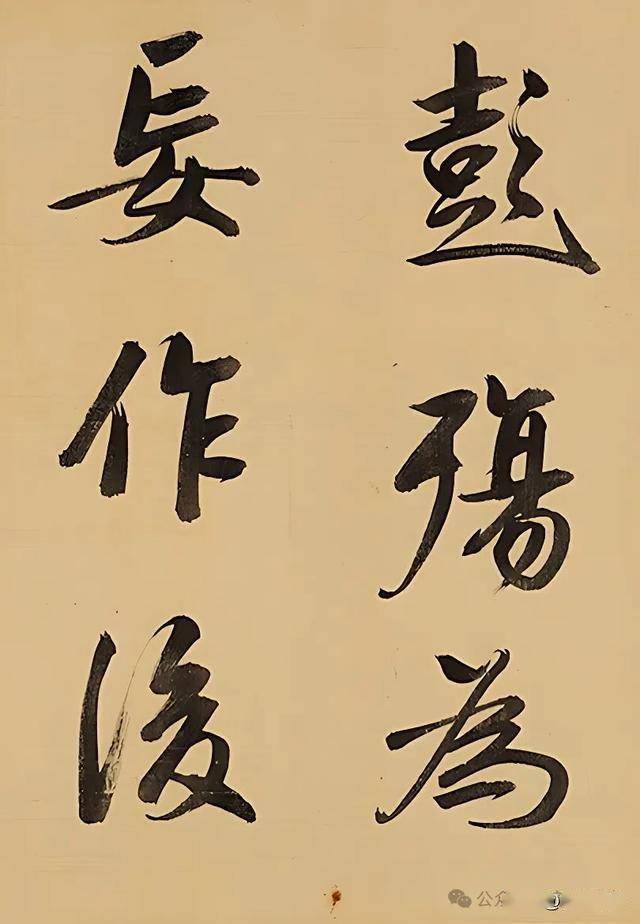 彭殇為
妄作後
公众